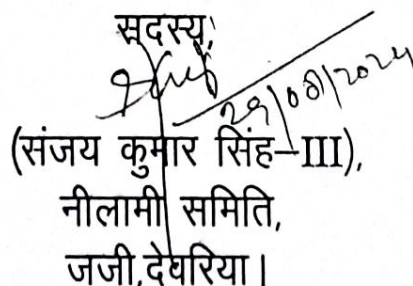 सदस्य,
29/08/2024
(संजय कुमार सिंह–III),
नीलामी समिति,
जजी,देवरिया।